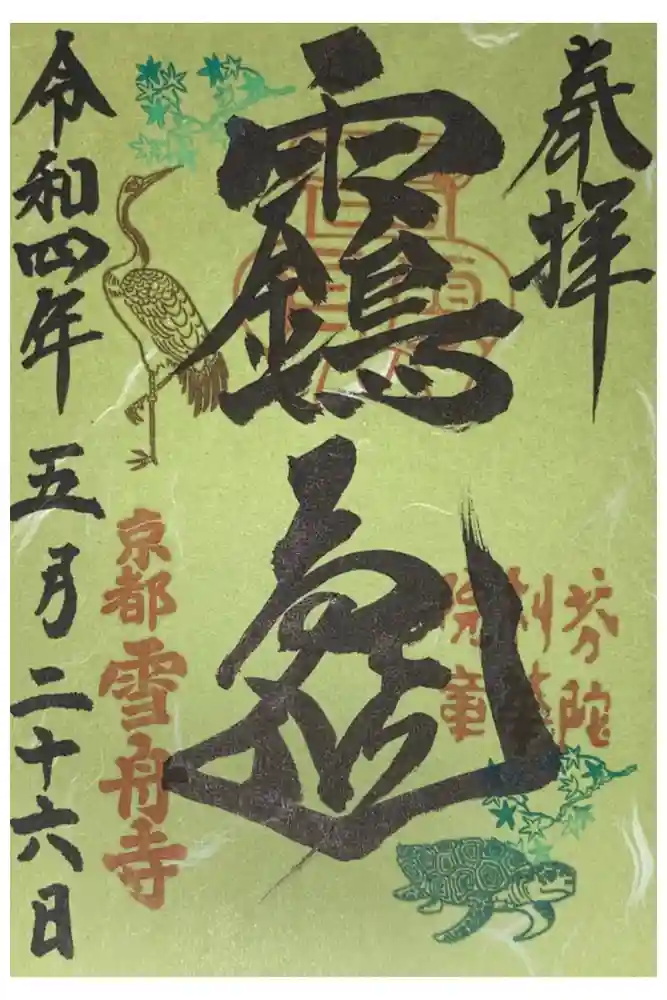 奉拝
靍
亀
芬陀
利華
院章
京都
雪舟寺
令和四年 五月二十六日